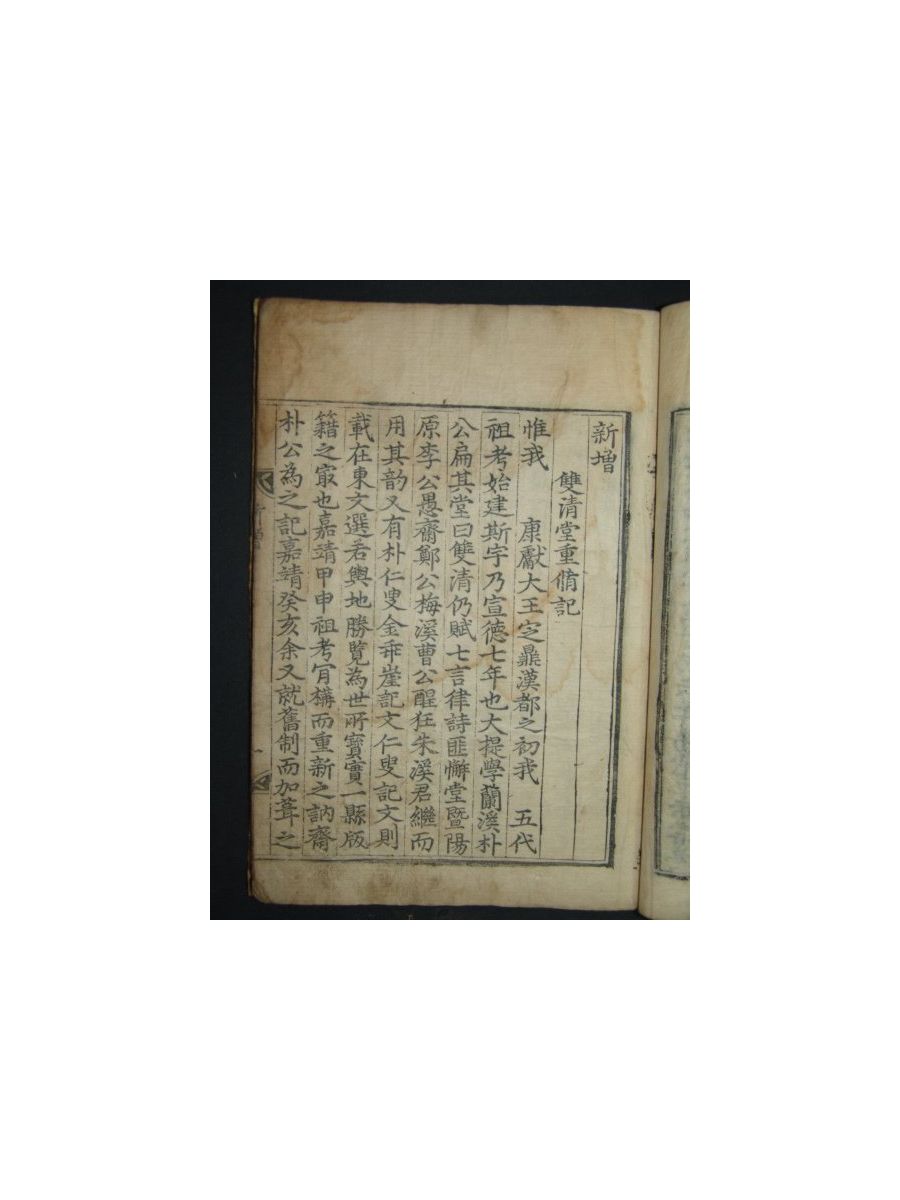 新增
雙清堂重脩記
惟我 康獻大王定鼎漢都之初我 五代
祖考始建斯宇乃宣德七年也大提學蘭溪朴
公扁其堂曰雙清仍賦七言律詩匪懈堂暨陽
原李公愚齋鄭公梅溪曹公醒狂朱溪君繼而
用其韵又有朴仁叟金乖崖記文仁叟記文則
載在東文選若輿地勝覽為世所寶實一縣版
籍之冣也嘉靖甲申祖考肯構而重新之訥齋
朴公為之記嘉靖癸亥余又就舊制而加葺之